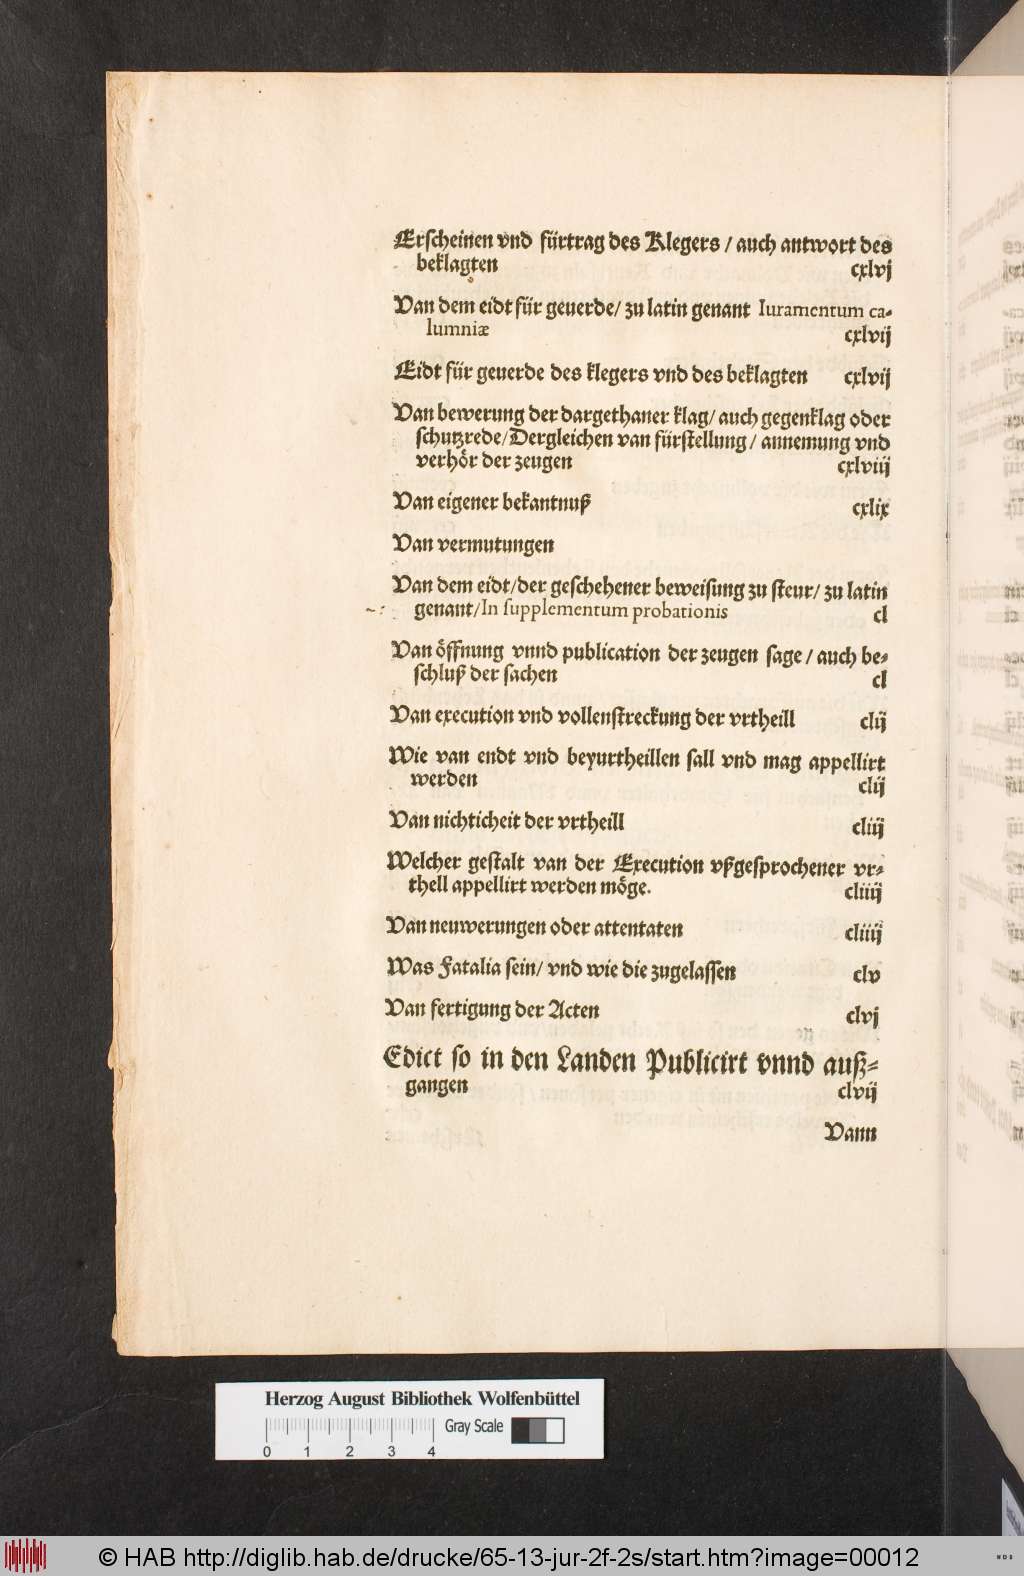 Erscheinen vnd fürtrag des Klegers / auch antwort des
beklagten cxlvj
Van dem eidt für geuerde/ zu latin genant Iuramentum ca-
lumniæ cxlvij
Eidt für geuerde des klegers vnd des beklagten cxlvij
Van bewerung der dargethaner klag/ auch gegenklag oder
schutzrede/Dergleichen van fürstellung/ annemung vnd
verhör der zeugen cxlviij
Van eigener bekantnuß cxlix
Van vermutungen
Van dem eidt/der geschehener beweisung zu steur/ zu latin
genant/In supplementum probationis cl
Van öffnung vnnd publication der zeugen sage / auch be-
schluß der sachen cl
Van execution vnd vollenstreckung der vrtheill clij
Wie van endt vnd beyurtheillen sall vnd mag appellirt
werden clij
Van nichticheit der vrtheill cliij
Welcher gestalt van der Execution vßgesprochener vr-
thell appellirt werden möge. cliiij
Van neuwerungen oder attentaten cliiij
Was Fatalia sein/ vnd wie die zugelassen clv
Van fertigung der Acten clvj
Edict so in den Landen Publicirt vnnd auß-
gangen clvij
Vann
Herzog August Bibliothek Wolfenbüttel
Gray Scale
0 1 2 3 4
© HAB http://diglib.hab.de/drucke/65-13-jur-2f-2s/start.htm?image=00012